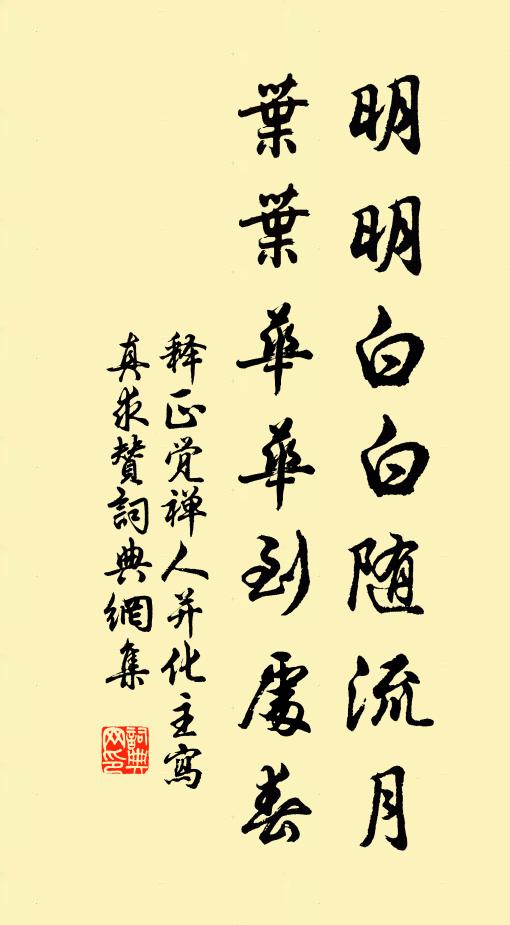 明明白白随流月
葉葉華華到處春
释正觉禅人并化主寫
真求贊詞典網集
詞典
网印